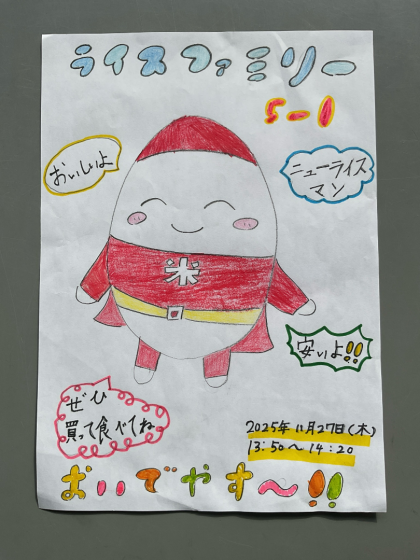 ライスファミリー
5-1
おいしいよ
ニューライス
マン
米
安いよ!!
ぜひ
買って食べてね
2025年11月27日(木)
13:50～14:20
おいでやす～!!